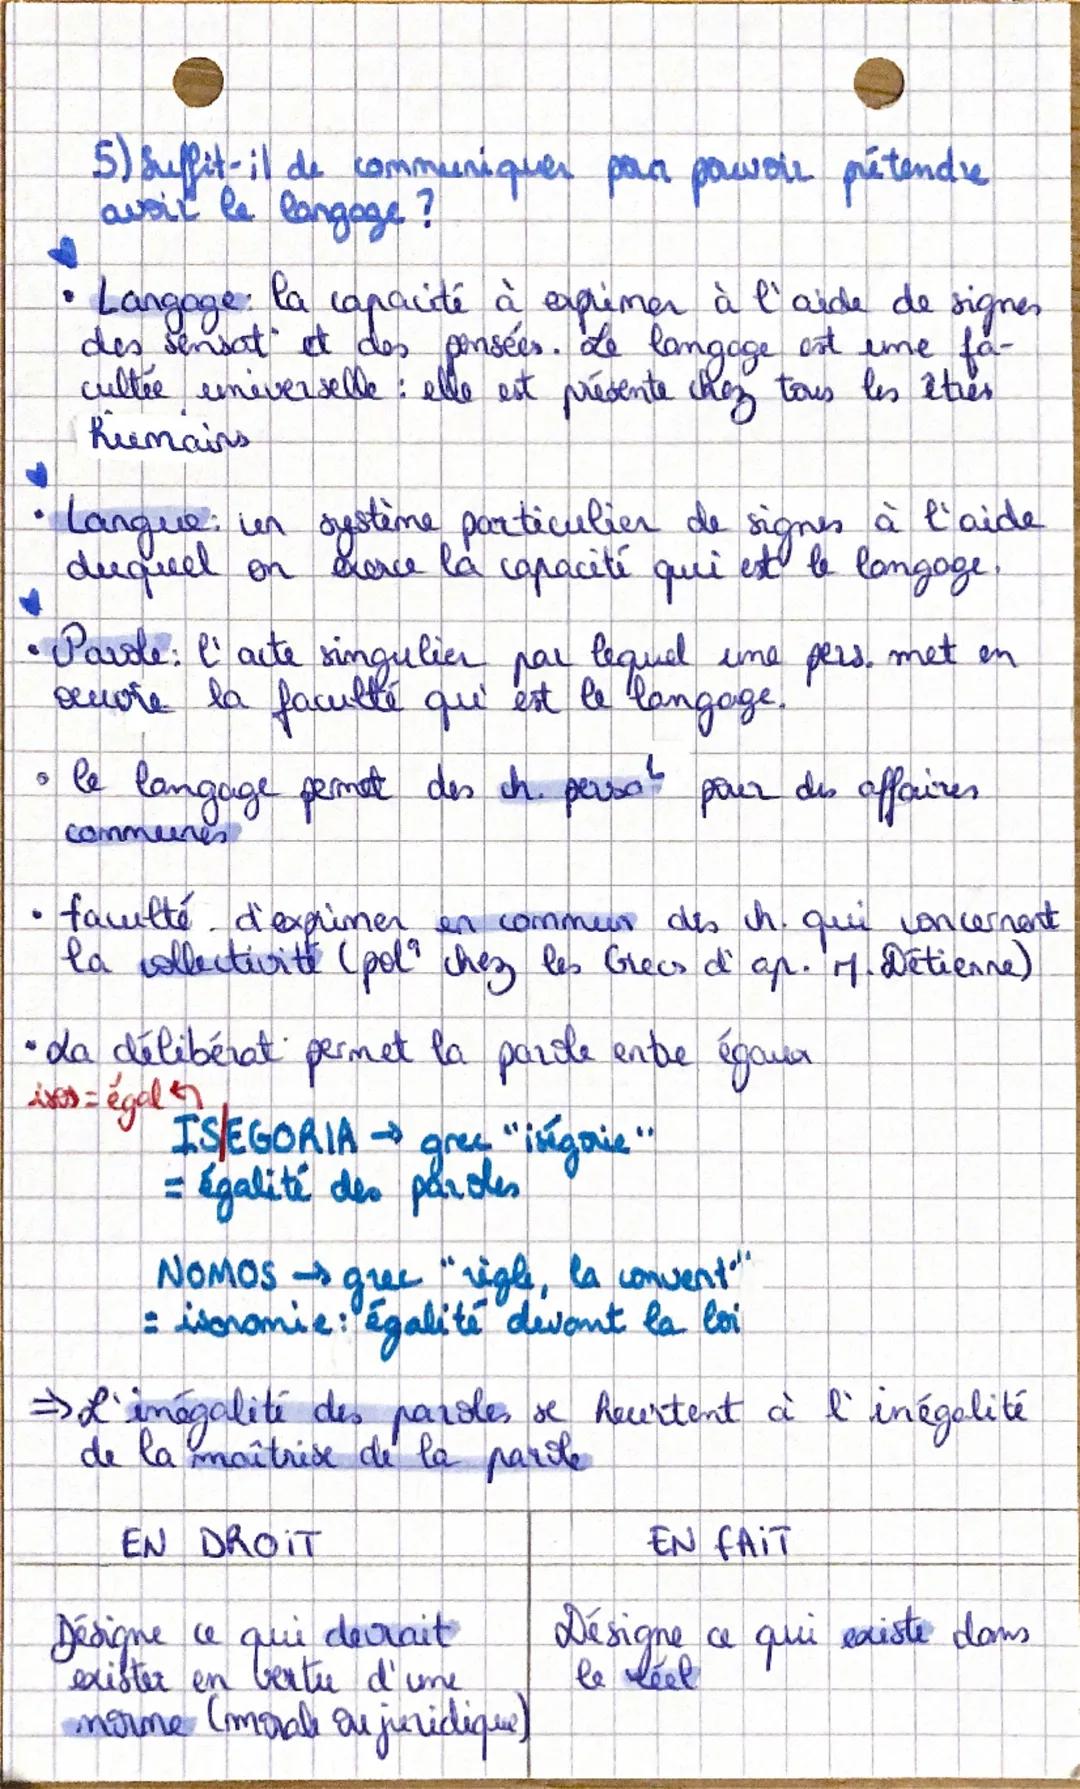 5) Suffit-il de communiquer pour pouvoir prétendre
avoir le langage ?
• Langage: la capacité à exprimer à l'aide de signes
des sensat° et des pensées. Le langage est une fa-
cultée universelle : elle est présente chez tous les êtres
humains
• Langue: un système particulier de signes à l'aide
duquel on exerce la capacité qui est le langage.
• Parole: l'acte singulier par lequel une pers. met en
oeuvre la faculté qui est le langage.
• le langage permet des ch. perso pour des affaires
communes
• faculté d'exprimer en commun des ch. qui concernent
la collectivité (pol° chez les Grecs d'ap. M. Détienne)
• La délibérat° permet la parole entre égaux
isos = égal
IS/EGORIA → grec "iségorie"
= égalité des paroles
NOMOS → grec "règle, la convent°"
= isonomie: égalité devant la loi
⇒ L'inégalité des paroles se heurtent à l'inégalité
de la maîtrise de la parole
EN DROIT
EN FAIT
Désigne ce qui devrait
exister en vertu d'une
norme (morale ou juridique)
Désigne ce qui existe dans
le réel